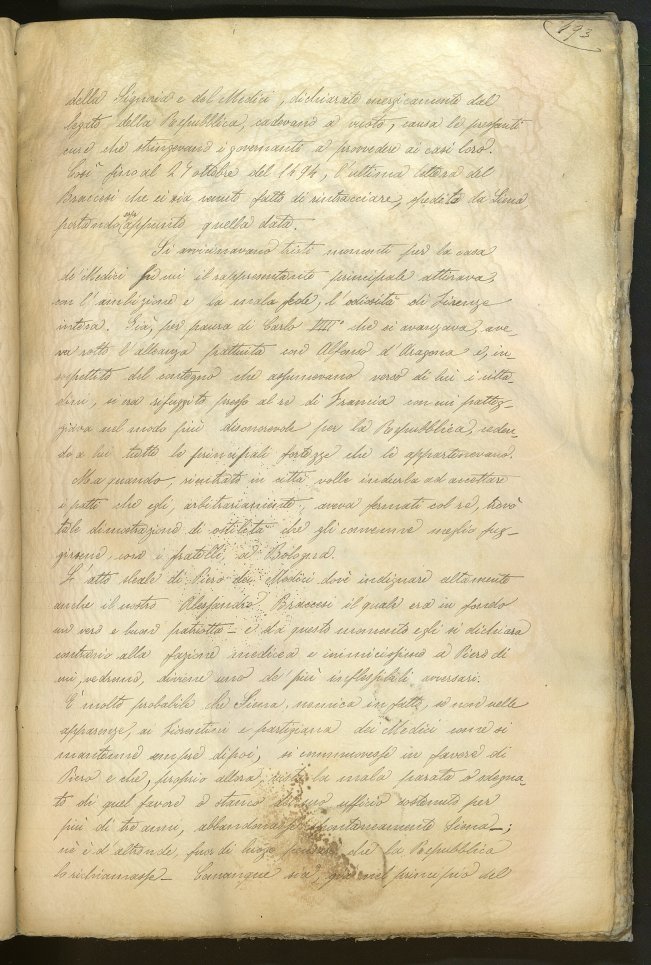 193
della Signoria e del Medici, dichiarate energicamente dal
legato della Repubblica, cadevano a vuoto, causa le pressanti
cure che stringevano i governanti a provvedere ai casi loro.
Così fino al 27 ottobre del 1494, l'ultima lettera del
Braccesi che ci sia venuto fatto di rintracciare, spedita da Siena,
portando essa appunto quella data.
Si avvicinavano tristi momenti per la casa
de' Medici su cui il rappresentante principale attirava,
con l'ambizione e la mala fede, l'odiosità di Firenze
intera. Già, per paura di Carlo VIII° che si avanzava, ave-
va rotto l'alleanza pattuita con Alfonso d'Aragona e, in-
sospettito del contegno che assumevano verso di lui i citta-
dini, si era rifuggito presso al re di Francia con cui patteg-
giava nel modo più disonorevole per la Repubblica, ceden-
do a lui tutte le principali fortezze che le appartenevano.
Ma quando, rientrato in città volle indurla ad accettare
i patti che egli, arbitrariamente, aveva fermati col re, trovò
tale dimostrazione di ostilità che gli convenne meglio fug-
girsene, con i fratelli, a Bologna.
L'atto sleale di Piero dei Medici dovè indignare altamente
anche il nostro Alessandro Braccesi il quale era in fondo
un vero e buon patriotta – e da questo momento egli si dichiara
contrario alla fazione medicea e inimicissimo a Piero di
cui, vedremo, diviene uno de' più inflessibili avversari.
È molto probabile che Siena, nemica in fatto, se non nelle
apparenze, ai Fiorentini e partigiana dei Medici come si
mantenne sempre dipoi, si commovesse in favore di
Piero e che, proprio allora, vista la mala parata o sdegna-
to di quel favore o stanco del suo ufficio sostenuto per
più di tre anni, abbandonasse spontaneamente Siena –;
nè è d'altronde, fuor di luogo che la Repubblica
lo richiamasse – Comunque sia, già nel principio del